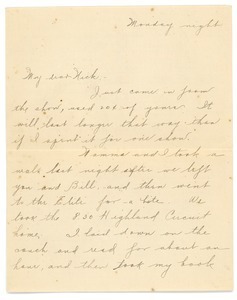 Monday night
My dear Nick:
Just came in from
the show, used one of yours. It
will last longer that way than
if I spent it for one show.
Mamma and I took a
walk last night after we left
you and Bill, and then went
to the Elite for a bite. We
took the 8:30 Highland Circuit
home. I laid down on the
couch and read for about an
hour, and then took my book